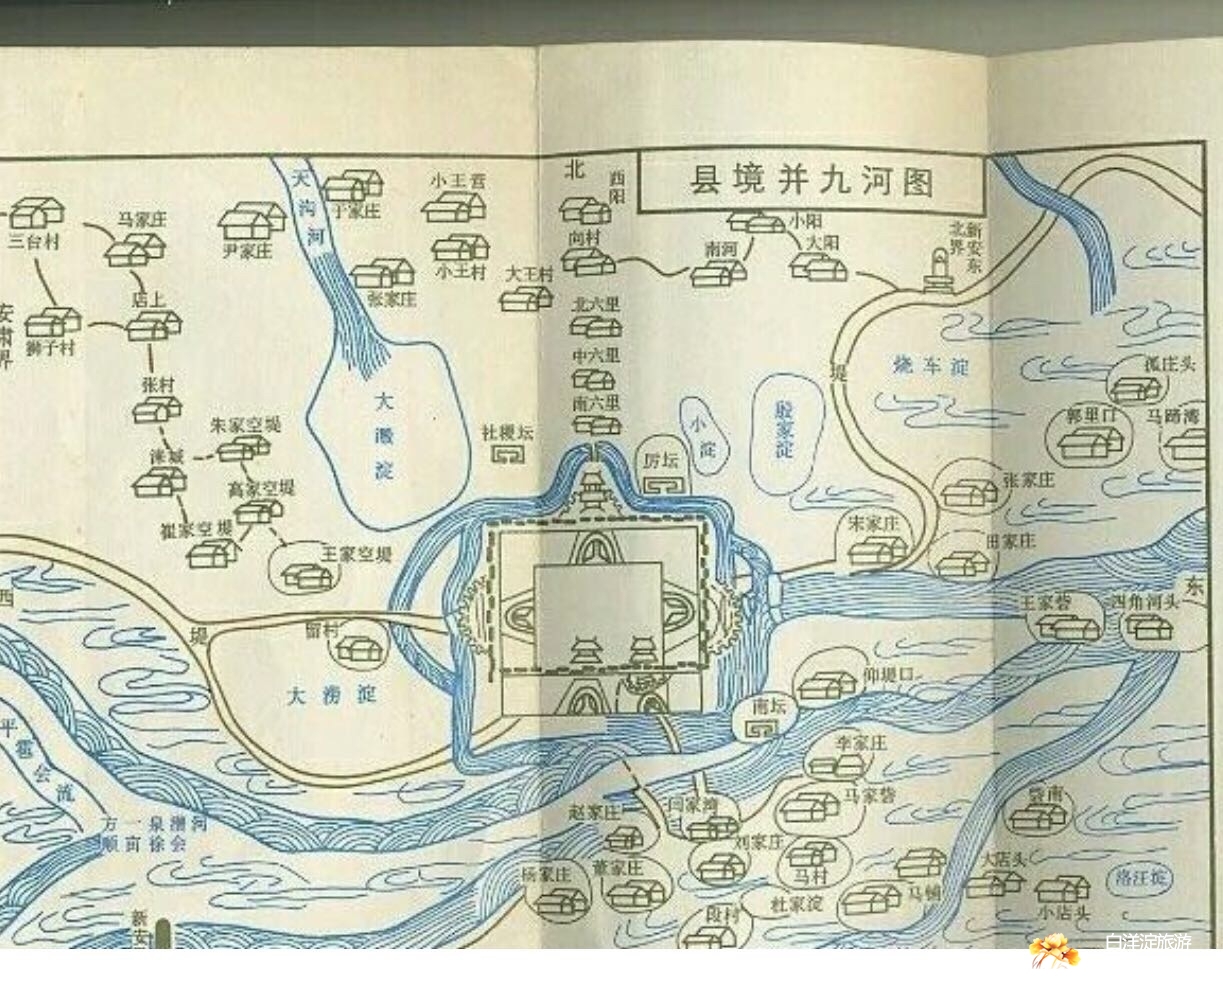 县境并九河图
北
酉阳
天沟河
于家庄
小王营
三台村
马家庄
尹家庄
小王村
向村
小阳
南河
大阳
新安东北界
张家庄
大王村
店上
北六里
安肃界
狮子村
中六里
堤
烧车淀
孤庄头
张村
大濲淀
南六里
小淀
殷家淀
郭里口
马蹄湾
朱家空堤
社稷坛
涞城
厉坛
高家空堤
张家庄
崔家空堤
宋家庄
田家庄
王家空堤
西
东
堤
留村
王家砦
四角河头
大涝淀
仰堤口
南坛
平
雹
会
流
李家庄
马家砦
砦南
赵家庄
闫家湾
方一泉漕河
顺亩徐会
刘家庄
杨家庄
董家庄
马村
大店头
洛汪淀
马铺
杜家淀
小店头
段村
新安
白洋淀旅游